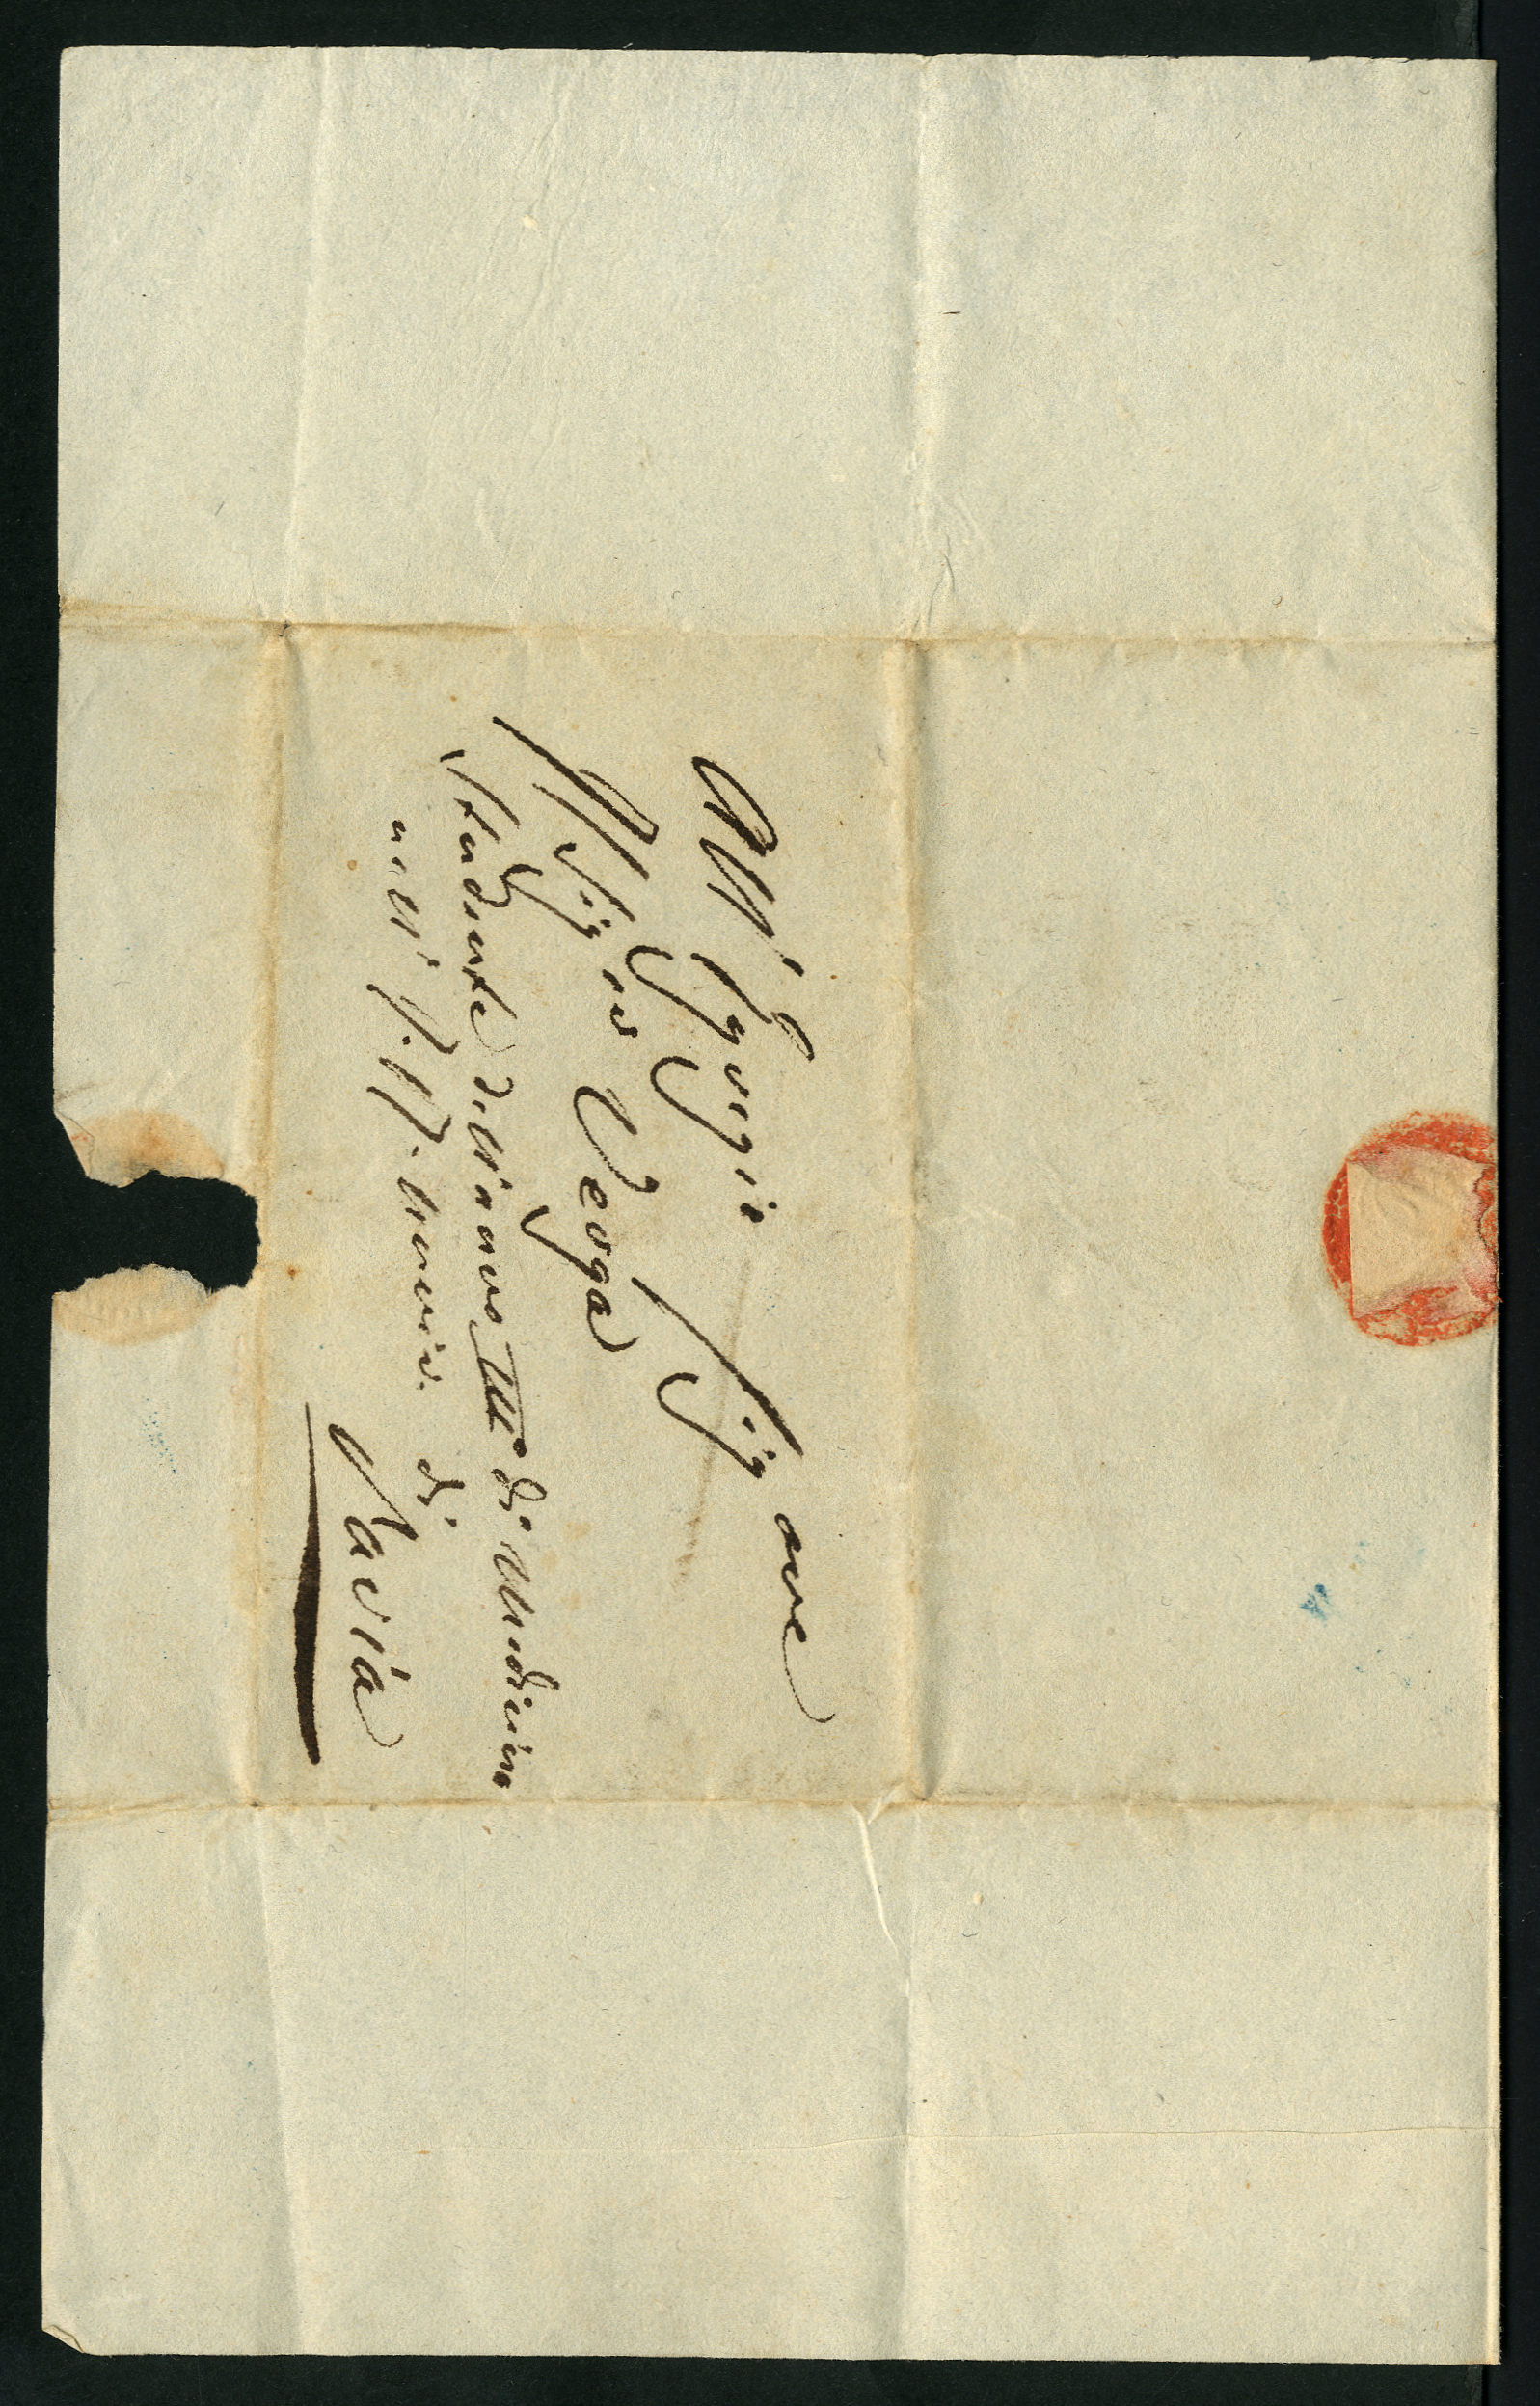 All'Egregio Signore
Il Sig.r Verga
Studente dell'anno III di Medicina
nell' I. R. Univer. di
Pavia